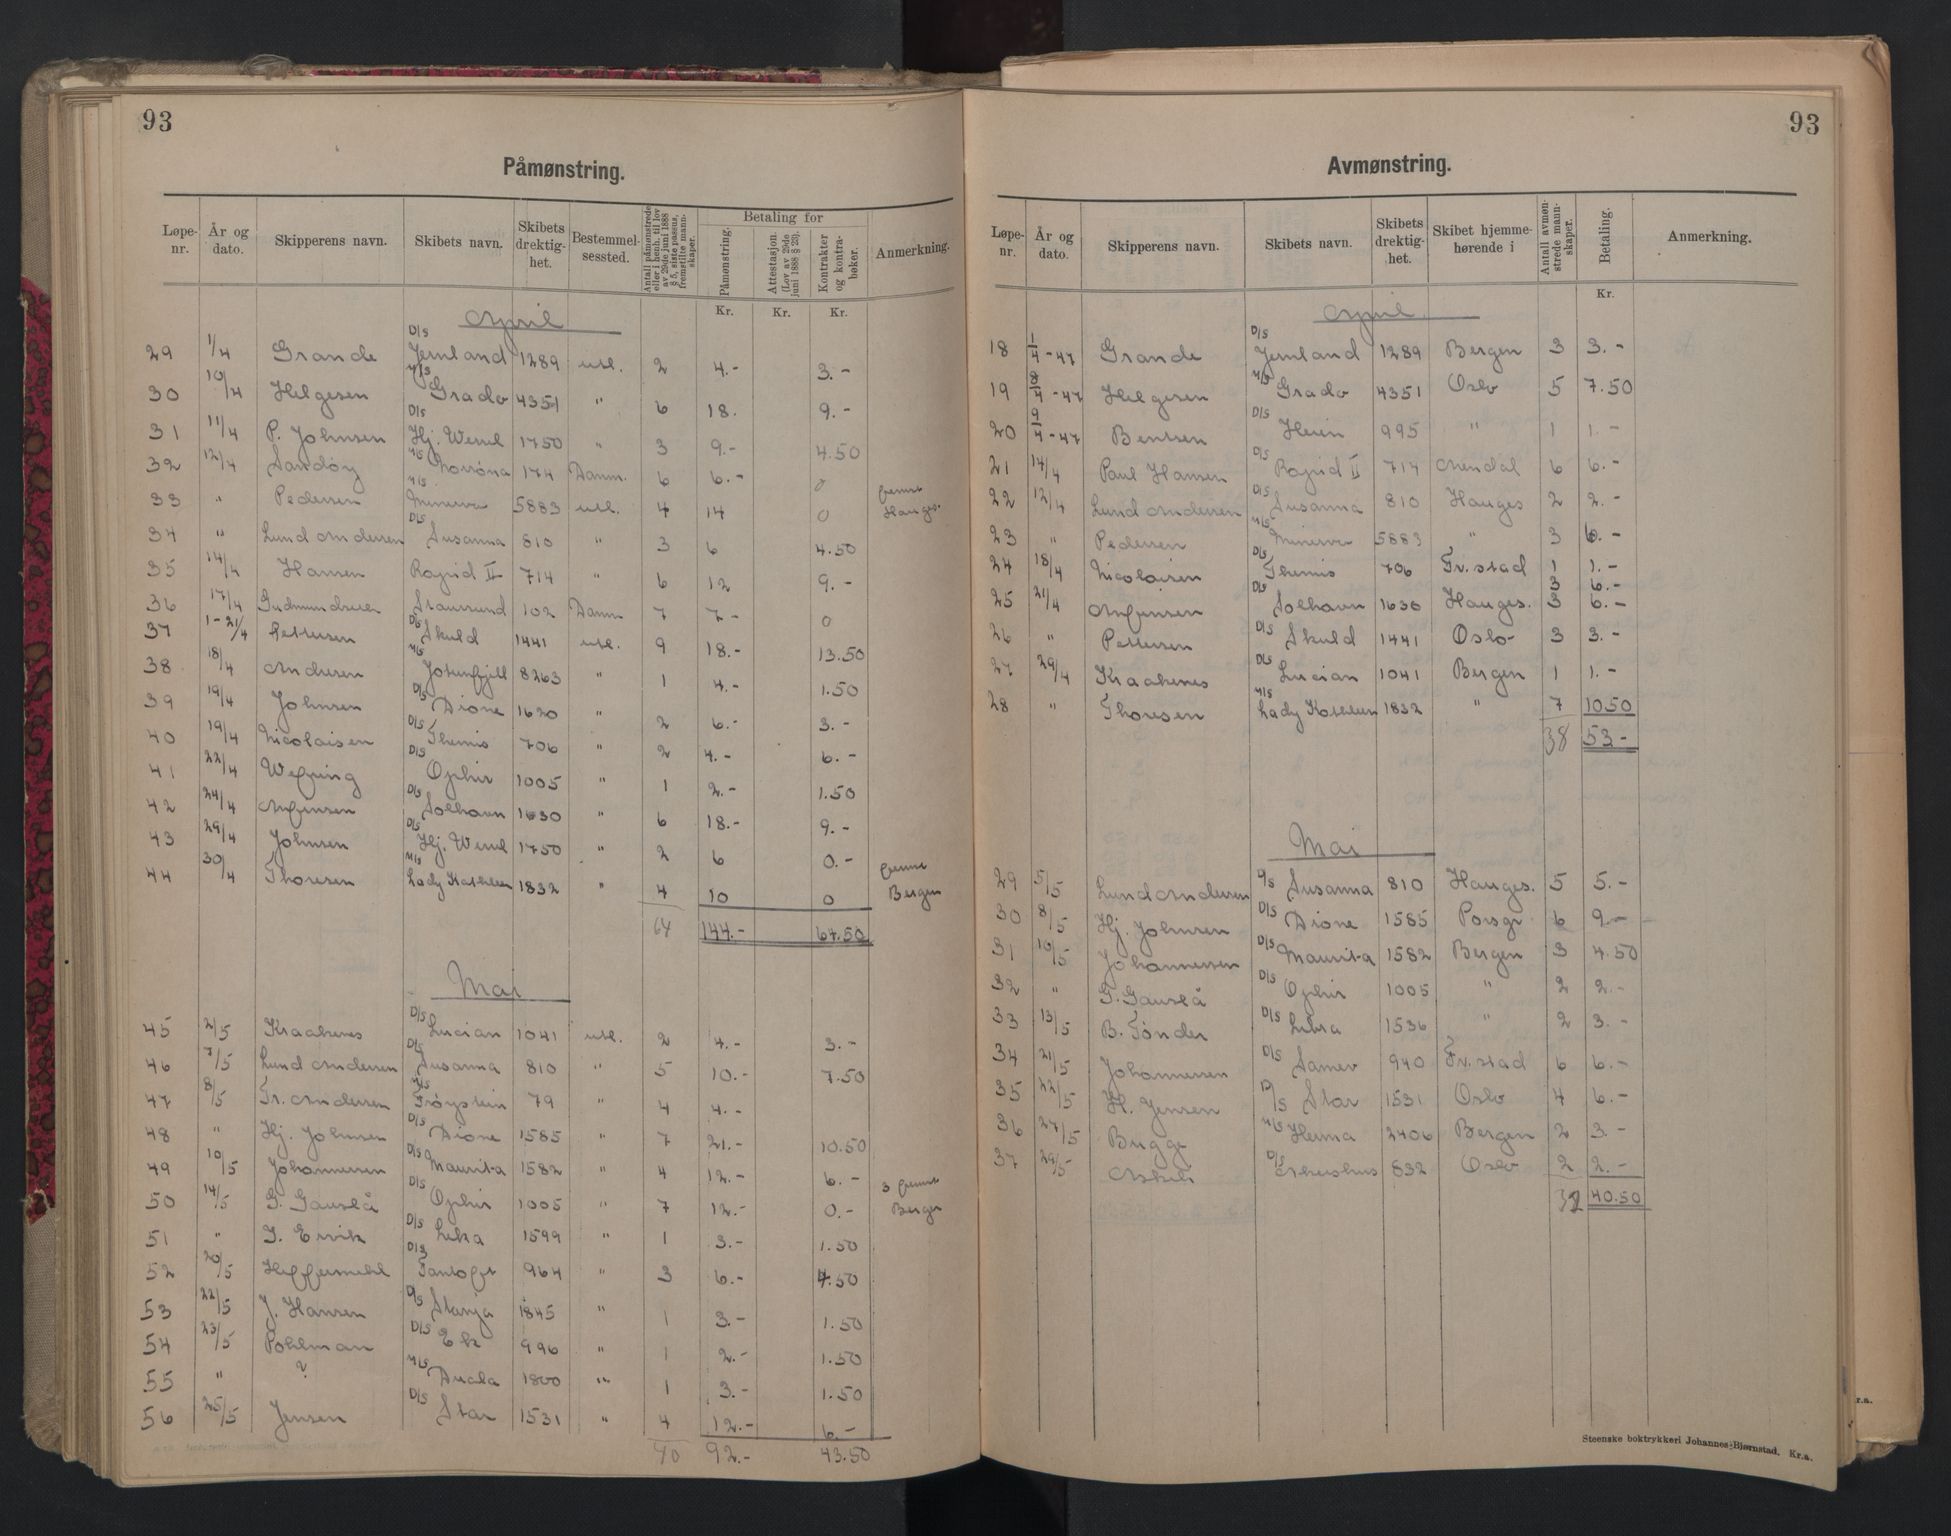 93
Påmønstring.
Løpe-nr. | År og dato. | Skipperens navn. | Skibets navn. | Skibets drektig-het. | Bestemmel-sessted. | Antall påmønstrede eller i henh. til lov av 29de juni 1888 § 5, siste passus, fremstilte mann-skaper. | Betaling for | Påmønstring. | Attestasjon. (Lov av 29de juni 1888 § 23). | Kontrakter og kontra-bøker. | Anmerkning.
Kr. Kr. Kr.
April
29 1/4 Grande D/S Jernland 1289 utl. 2 4.- 3.-
30 10/4 Helgesen M/S Grado 4351 " 6 18. 9.-
31 11/4 P. Johnsen D/S Hj. Wessel 1750 " 3 9.- 4.50
32 12/4 Sandøy M/S Norrøna 174 Danm. 6 6.- 0
33 " Pedersen M/S Minerva 5883 utl. 4 14 0 Hauges.
34 " Lund Andersen D/S Susanna 810 " 3 6 4.50
35 14/4 Hansen Rapid II 714 " 6 12 9.-
36 17/4 Gudmundsen 102 Danm 7 7.- 0
37 1-21/4 Pettersen D/S Skuld 1441 utl. 9 18.- 13.50
38 18/4 Andersen M/S Jotunfjell 8263 " 1 4.- 1.50
39 19/4 Johnsen D/S Dione 1620 " 2 6.- 3.-
40 19/4 Nicolaisen D/S Themis 706 " 2 4.- 6.-
41 22/4 D/S Ophir 1005 " 1 2.- 1.50
42 24/4 D/S Solhavn 1630 " 6 18.- 9.-
43 29/4 Johnsen D/S Hj. Wessel 1750 " 2 6 0.-
44 30/4 Thoresen M/S Lady Kathleen 1832 " 4 10 0 Bergen
64 144.- 64.50
Mai
45 2/5 Kraakenes D/S Lucian 1041 utl. 2 4.- 3.-
46 7/5 Lund Andersen D/S Susanna 810 " 5 10.- 7.50
47 8/5 Fr. Andersen M/S Frøystein 79 " 4 4.-
48 " Hj. Johnsen D/S Dione 1585 " 7 21.- 10.50
49 10/5 Johannessen D/S Maurita 1582 " 4 12.- 6.-
50 14/5 G. Gauslå D/S Ophir 1005 " 7 12.- 0.- 3 Bergen
51 " J. Ervik D/S Leka 1599 " 1 3.- 1.50
52 20/5 Heffermehl D/S Fantoft 964 " 3 6.- 4.50
53 22/5 J. Hansen D/S Stanja 1845 " 1 3.- 1.50
54 23/5 Pohlman D/S Ek 996 " 1 2.- 1.50
55 " ? M/S Duala 1800 " 1 3.- 1.50
56 25/5 Jensen D/S Star 1531 " 4 12.- 6.-
40 92.- 43.50
93
Avmønstring.
Løpe-nr. | År og dato. | Skipperens navn. | Skibets navn. | Skibets drektig-het. | Skibet hjemme-hørende i | Antall avmøn-strede mann-skaper. | Betaling. | Anmerkning.
Kr.
April
18 1/4-47 Grande D/S Jernland 1289 Bergen 3 3.-
19 8/4-47 Helgesen M/S Grado 4351 Oslo 5 7.50
20 9/4-47 Bentsen D/S Heien 995 " 1 1.-
21 14/4 Paul Hansen D/S Rapid II 714 Arendal 6 6.-
22 12/4 Lund Andersen D/S Susanna 810 Hauges 2 2.-
23 " Pedersen M/S Minerva 5883 " 3 6.-
24 18/4 Nicolaisen D/S Themis 706 Fr.stad 1 1.-
3 6.-
25 21/4 D/S Solhavn 1630 Hauges. 3 6.-
26 " Pettersen D/S Skuld 1441 Oslo 3 3.-
27 29/4 Kraakenes D/S Lucian 1041 Bergen 1 1.-
28 " Thoresen M/S Lady Kathleen 1832 " 7 10.50
38 53.-
Mai
29 5/5 Lund Andersen D/S Susanna 810 Hauges. 5 5.-
30 8/5 Hj. Johnsen D/S Dione 1585 Porsgr 6 9.-
31 10/5 Johannessen D/S Maurita 1582 Bergen 3 4.50
32 " G. Gauslå D/S Ophir 1005 " 2 2.-
33 13/5 B. Tønder D/S Libra 1536 " 2 3.-
34 21/5 Johannessen D/S Samer 940 Fr.stad 6 6.-
35 22/5 H. Jensen D/S Star 1531 Oslo 4 6.-
36 27/5 Bugge M/S Herma 2406 Bergen 2 3.-
37 29/5 D/S Akershus 832 Oslo 2 2.-
32 40.50
Steenske boktrykkeri Johannes Bjørnstad. Kr.a.
r.a.